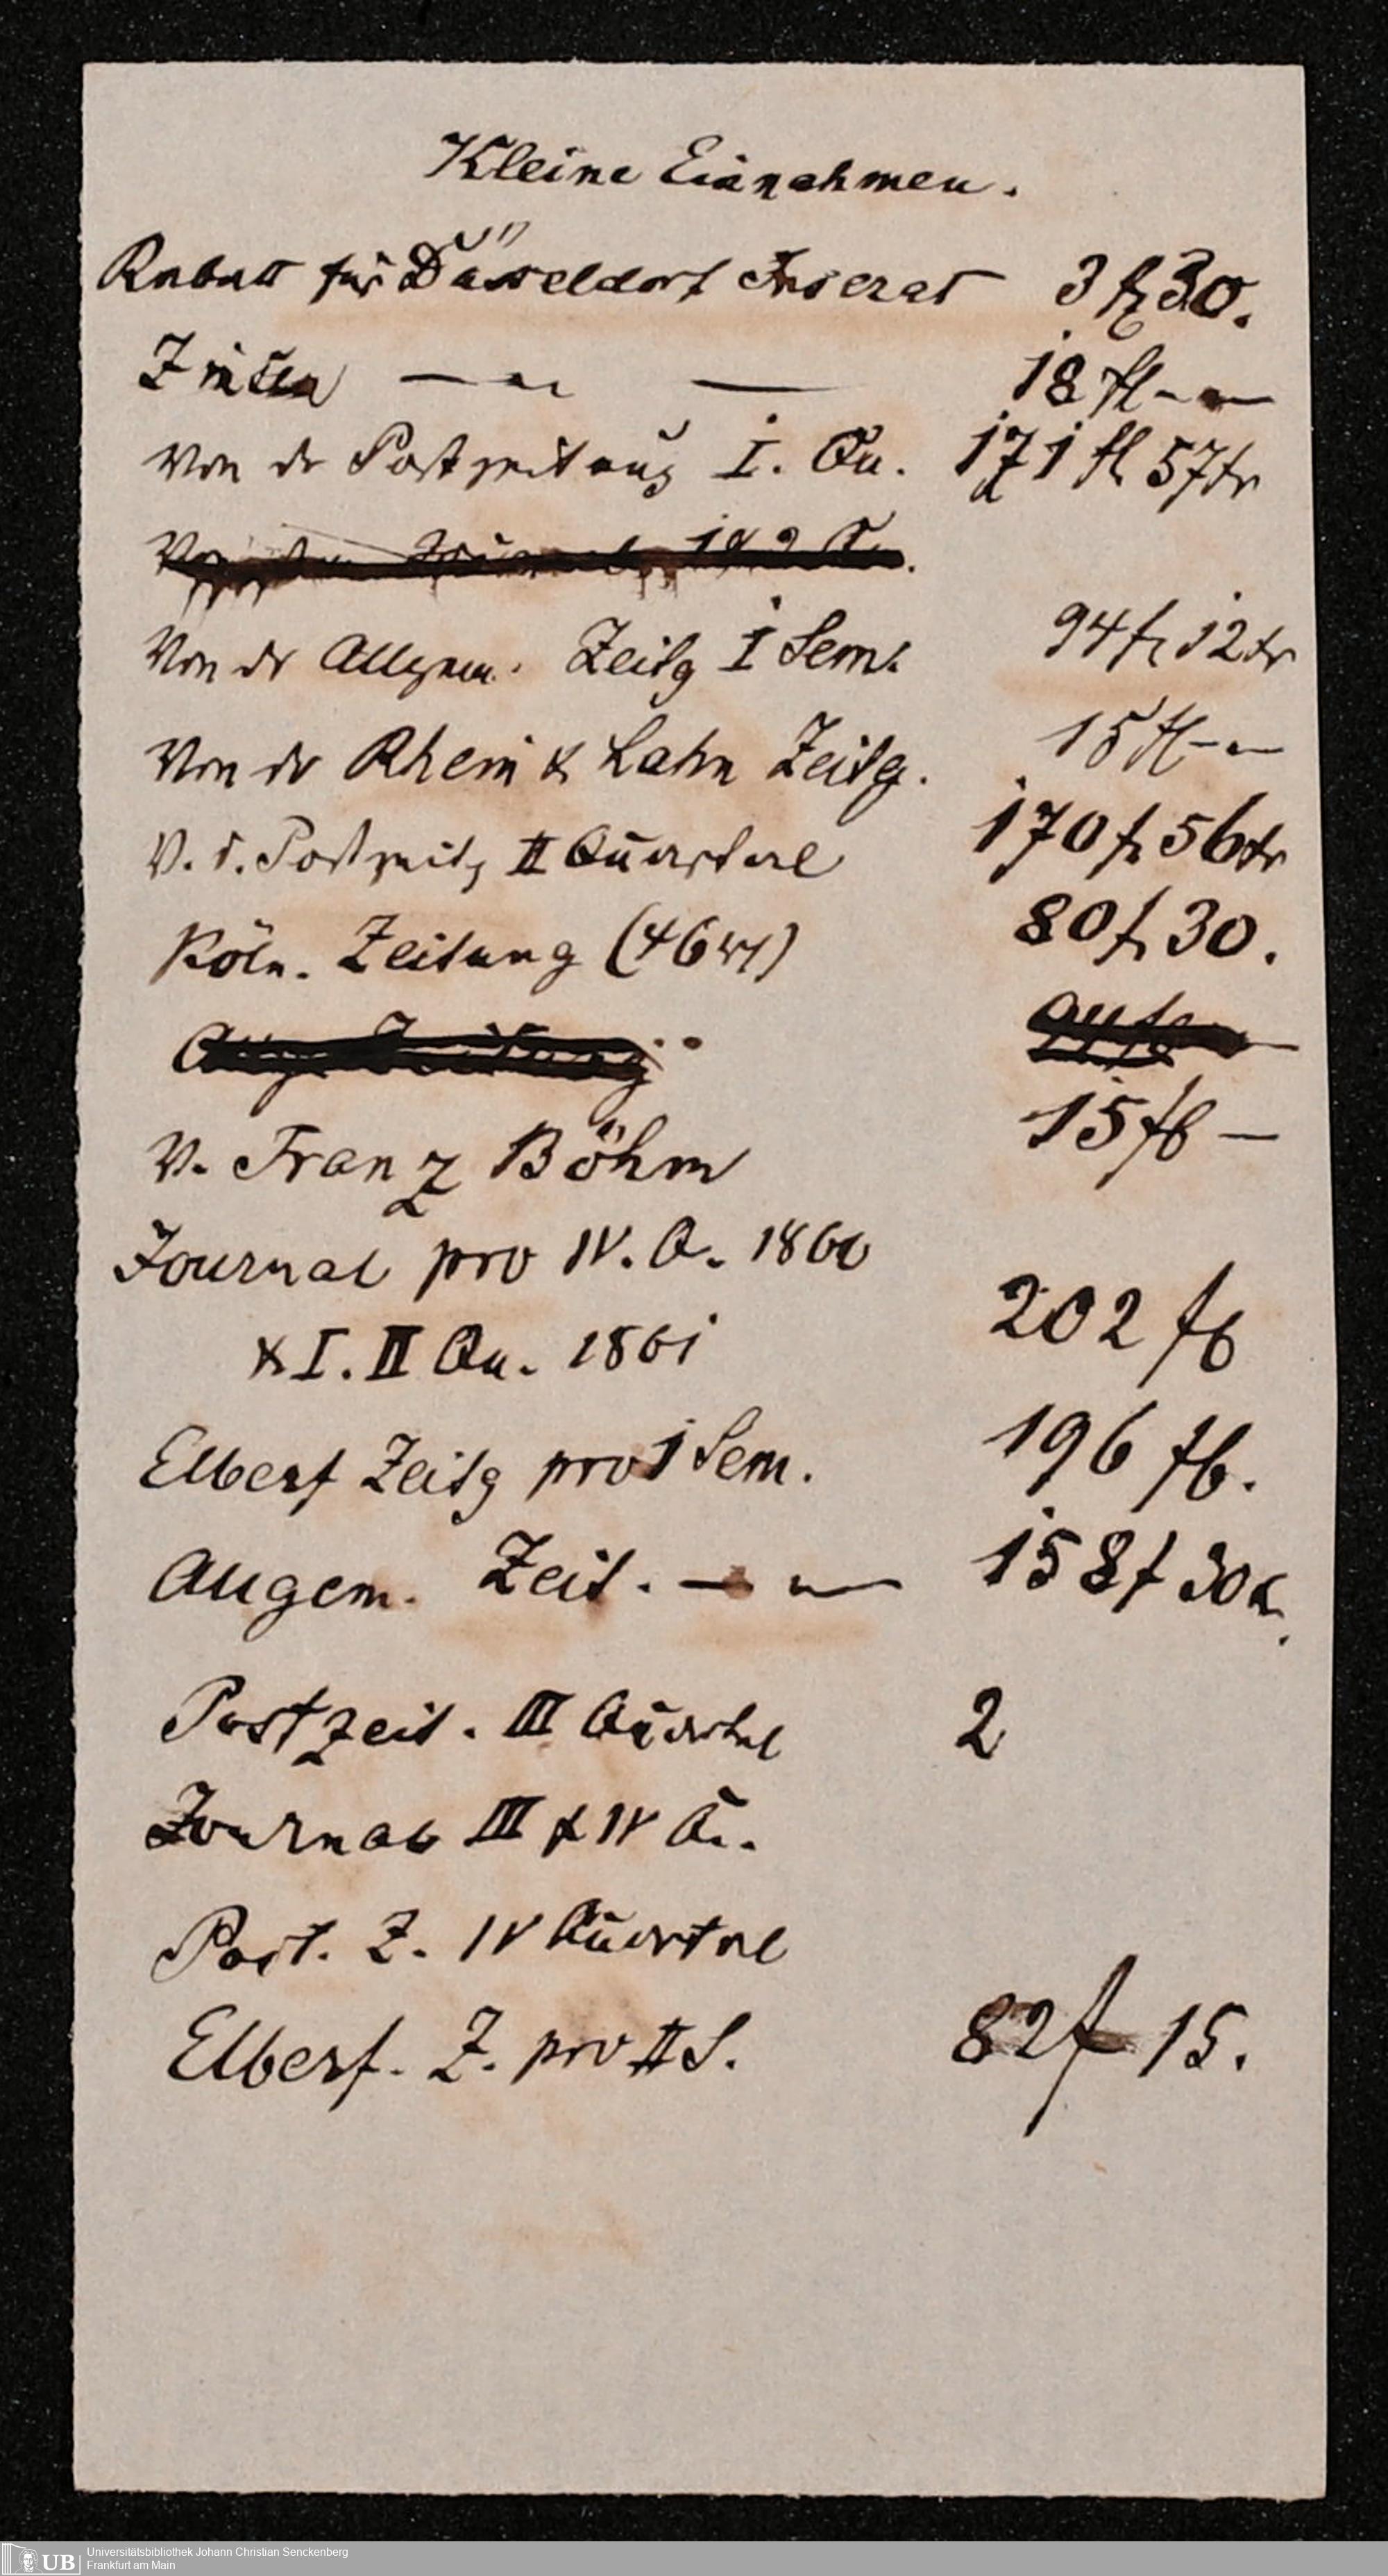 Kleine Einnahmen.
Rabatt für Düsseldorf Inserat 3 fl 30.
Zinsen — " — 18 fl - " —
Von dr Postzeitung I. Qu. 171 fl 57 kr
Von dr Allgem. Zeitg I Sem. 94 fl 12 kr
Von dr Rhein & Lahn Zeitg. 15 fl - " —
V. d. Postzeitg II Quartal 170 fl 56 kr
Köln. Zeitung (46 ) 80 fl 30.
V. Franz Böhm 15 fl —
Journal pro IV. Q. 1860
& I. II Qu. 1861 202 fl
Elberf Zeitg pro I Sem. 196 fl.
Allgem. Zeit. — " — 158 f 30 k.
Postzeit. III Quartal 2
Journal III & IV Q.
Post. Z. IV Quartal
Elberf. Z. pro II S. 82 f 15.
Universitätsbibliothek Johann Christian Senckenberg
Frankfurt am Main
UB